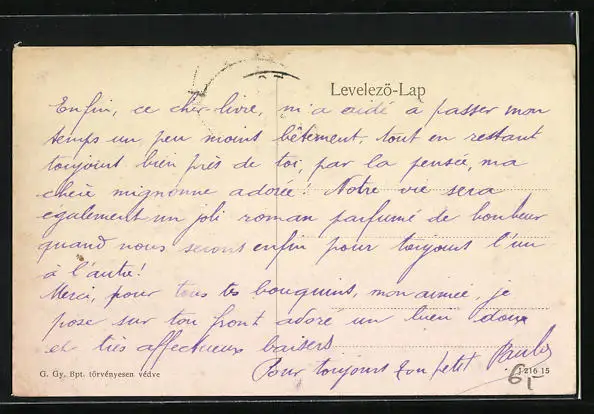 Levelező-Lap
Enfin, ce cher livre, m'a aidé a passer mon
temps un peu moins bêtement, tout en restant
toujours bien près de toi, par la pensée, ma
chérie mignonne adorée! Notre vie sera
également un joli roman parfumé de bonheur
quand nous serons enfin pour toujours l'un
à l'autre!
Merci, pour tous tes bouquins, mon aimée, je
pose sur ton front adoré un bien doux
et très affectueux baisers
Pour toujours ton petit
G. Gy. Bpt. törvényesen védve
J 216 15
6,-